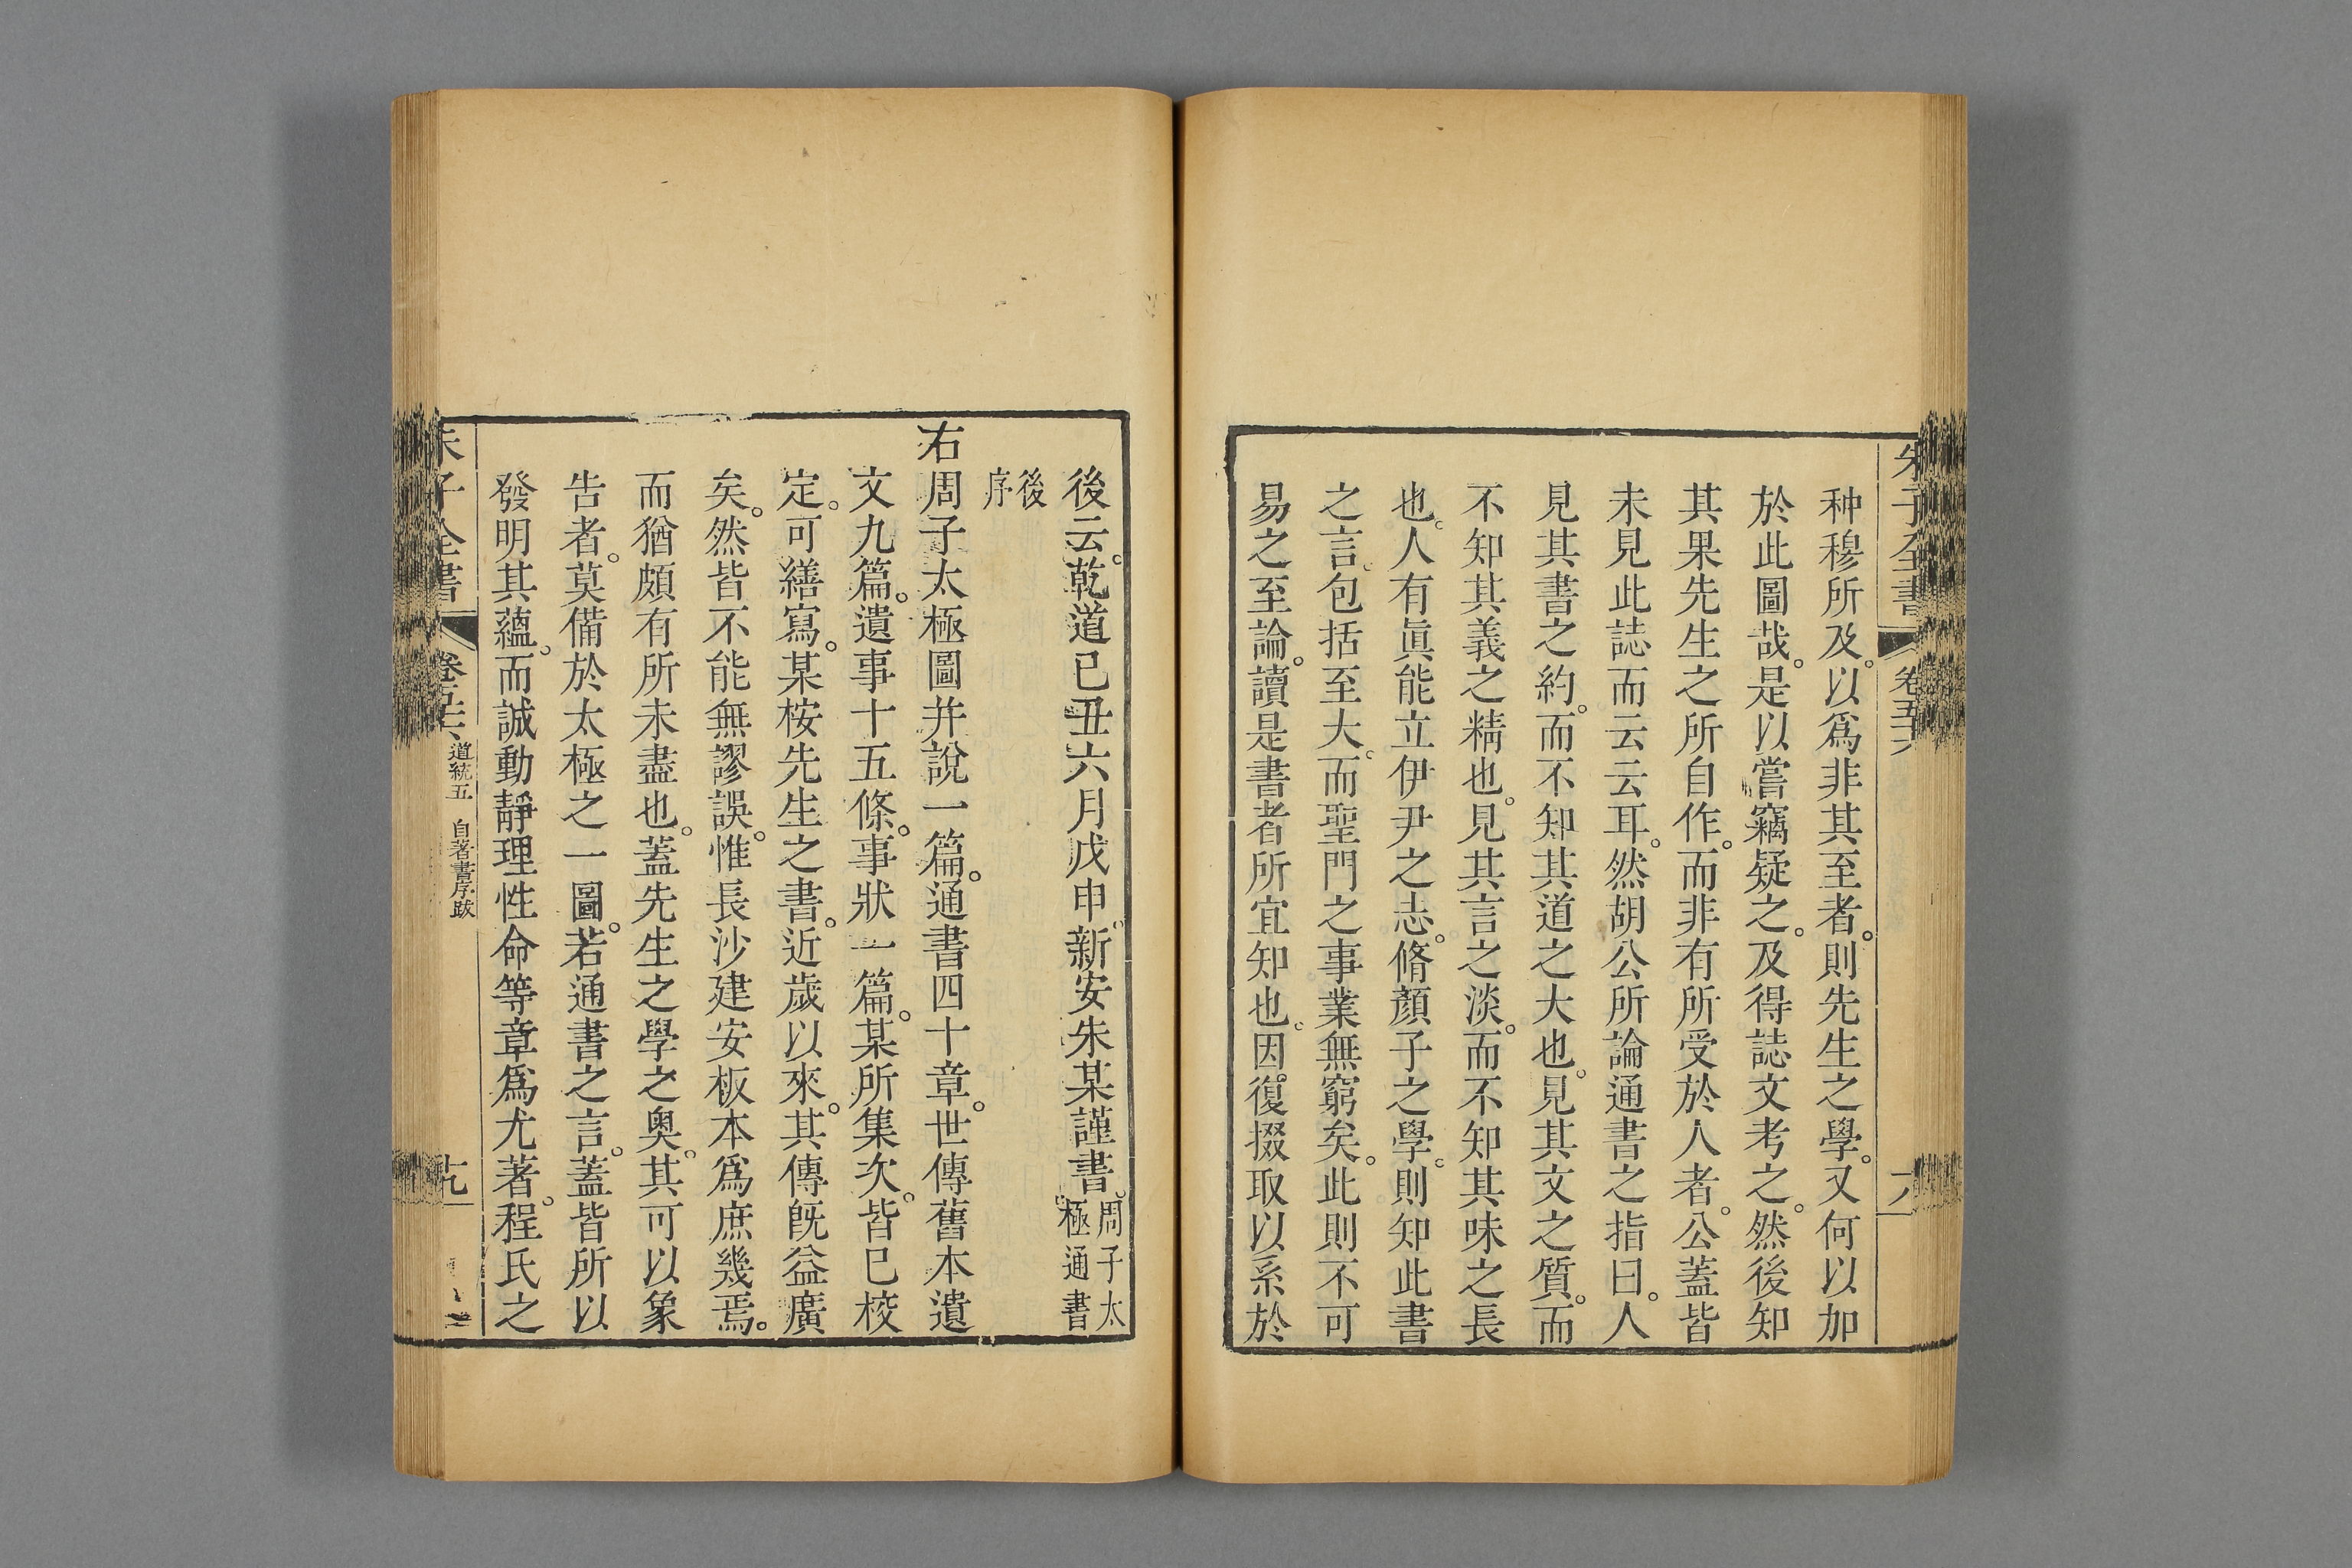 朱子全書 卷五十六 六
种穆所及。以爲非其至者。則先生之學。又何以加
於此圖哉。是以嘗竊疑之。及得誌文考之。然後知
其果先生之所自作。而非有所受於人者。公蓋皆
未見此誌而云云耳。然胡公所論通書之指曰。人
見其書之約。而不知其道之大也。見其文之質。而
不知其義之精也。見其言之淡。而不知其味之長
也。人有眞能立伊尹之志。脩顏子之學。則知此書
之言。包括至大。而聖門之事業無窮矣。此則不可
易之至論。讀是書者所宜知也。因復掇取以系於
後云。乾道己丑六月戊申。新安朱某謹書。周子太極通書
後序
右周子太極圖并說一篇。通書四十章。世傳舊本遺
文九篇。遺事十五條。事狀一篇。某所集次。皆已校
定。可繕寫。某桉先生之書。近歲以來。其傳旣益廣
矣。然皆不能無謬誤。惟長沙建安板本爲庶幾焉。
而猶頗有所未盡也。蓋先生之學之奧。其可以象
告者。莫備於太極之一圖。若通書之言。蓋皆所以
發明其蘊。而誠動靜理性命等章爲尤著。程氏之
朱子全書 道統五 自著書序跋